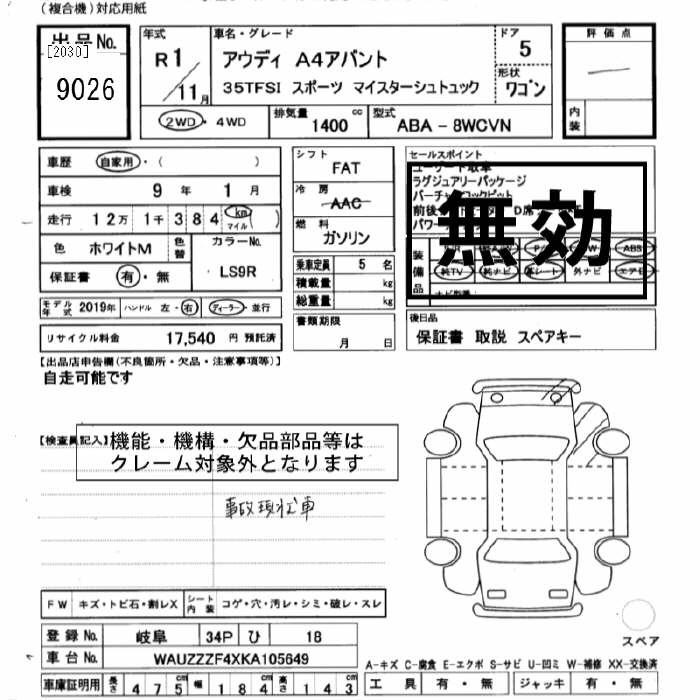 (複合機)対応用紙
出品No.
[2030]
9026
年式
R 1/11月
車名・グレード
アウディ A4アバント
35TFSI スポーツ マイスターシュトュック
ドア
5
形状
ワゴン
評価点
内装
2WD・4WD
排気量
1400 cc
型式
ABA - 8WCVN
車歴
自家用・( )
車検
9年 1月
走行
12万 1千 384 km マイル
色
ホワイトM
色替
カラーNo.
LS9R
保証書
有・無
シフト
FAT
冷房
AAC
燃料
ガソリン
乗車定員 5名
積載量 kg
総重量 kg
書類期限
月 日
セールスポイント
ラグジュアリーパッケージ
無効
装備品
ABS
純TV 純ナビ 革シート 外ナビ エアB
モデル年式 2019年 ハンドル 左・右 ディーラー・並行
リサイクル料金 17,540 円 預託済
後日品
保証書 取説 スペアキー
【出品店申告欄(不良箇所・欠品・注意事項等)】
自走可能です
【検査員記入】
機能・機構・欠品部品等は
クレーム対象外となります
事故現状車
FW キズ・トビ石・割レX シート内装 コゲ・穴・汚レ・シミ・破レ・スレ
登録No. 岐阜 34P ひ 18
車台No. WAUZZZF4XKA105649
車庫証明用 長さ 475cm 幅 184cm 高さ 143cm
スペア
A-キズ C-腐食 E-エクボ S-サビ U-凹ミ W-補修 XX-交換済
工具 有・無 ジャッキ 有・無